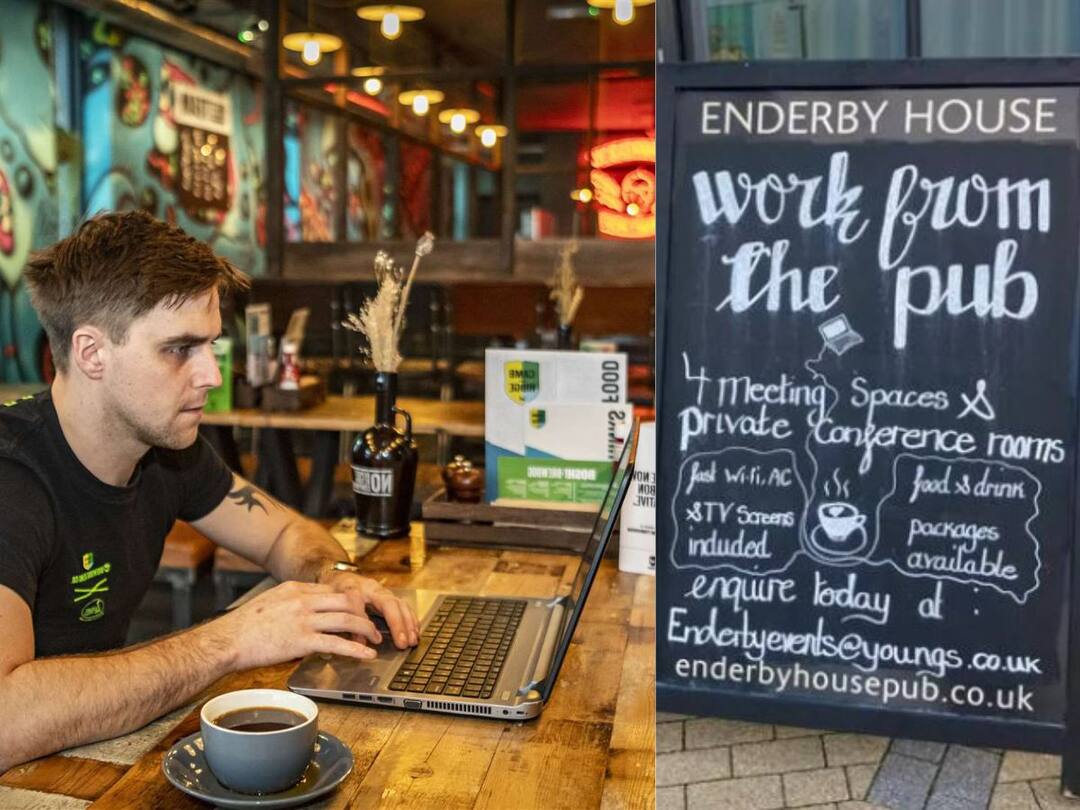 CAMB
RIDGE
FOOD
ENDERBY HOUSE
work from
the pub
4 meeting spaces &
private conference rooms
fast wi-fi, AC
& TV screens
included
food & drink
packages
available
enquire today at :
Enderbyevents@youngs.co.uk
enderbyhousepub.co.uk